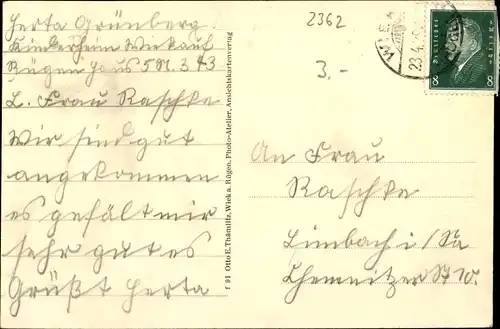 Herta Grünberg
Kinderheim Wiek auf
Rügen Haus 5 N. 3.43
L. Frau Raschke
Wir sind gut
angekommen
es gefält mir
sehr gut es
Grüßt Herta
F 91 Otto E. Thämlitz, Wiek a. Rügen, Photo-Atelier, Ansichtskartenverlag
2362
3.-
WIEK
23.4.
8 8
An Frau
Raschke
Limbach i/Sa
Chemnitzer St 10.